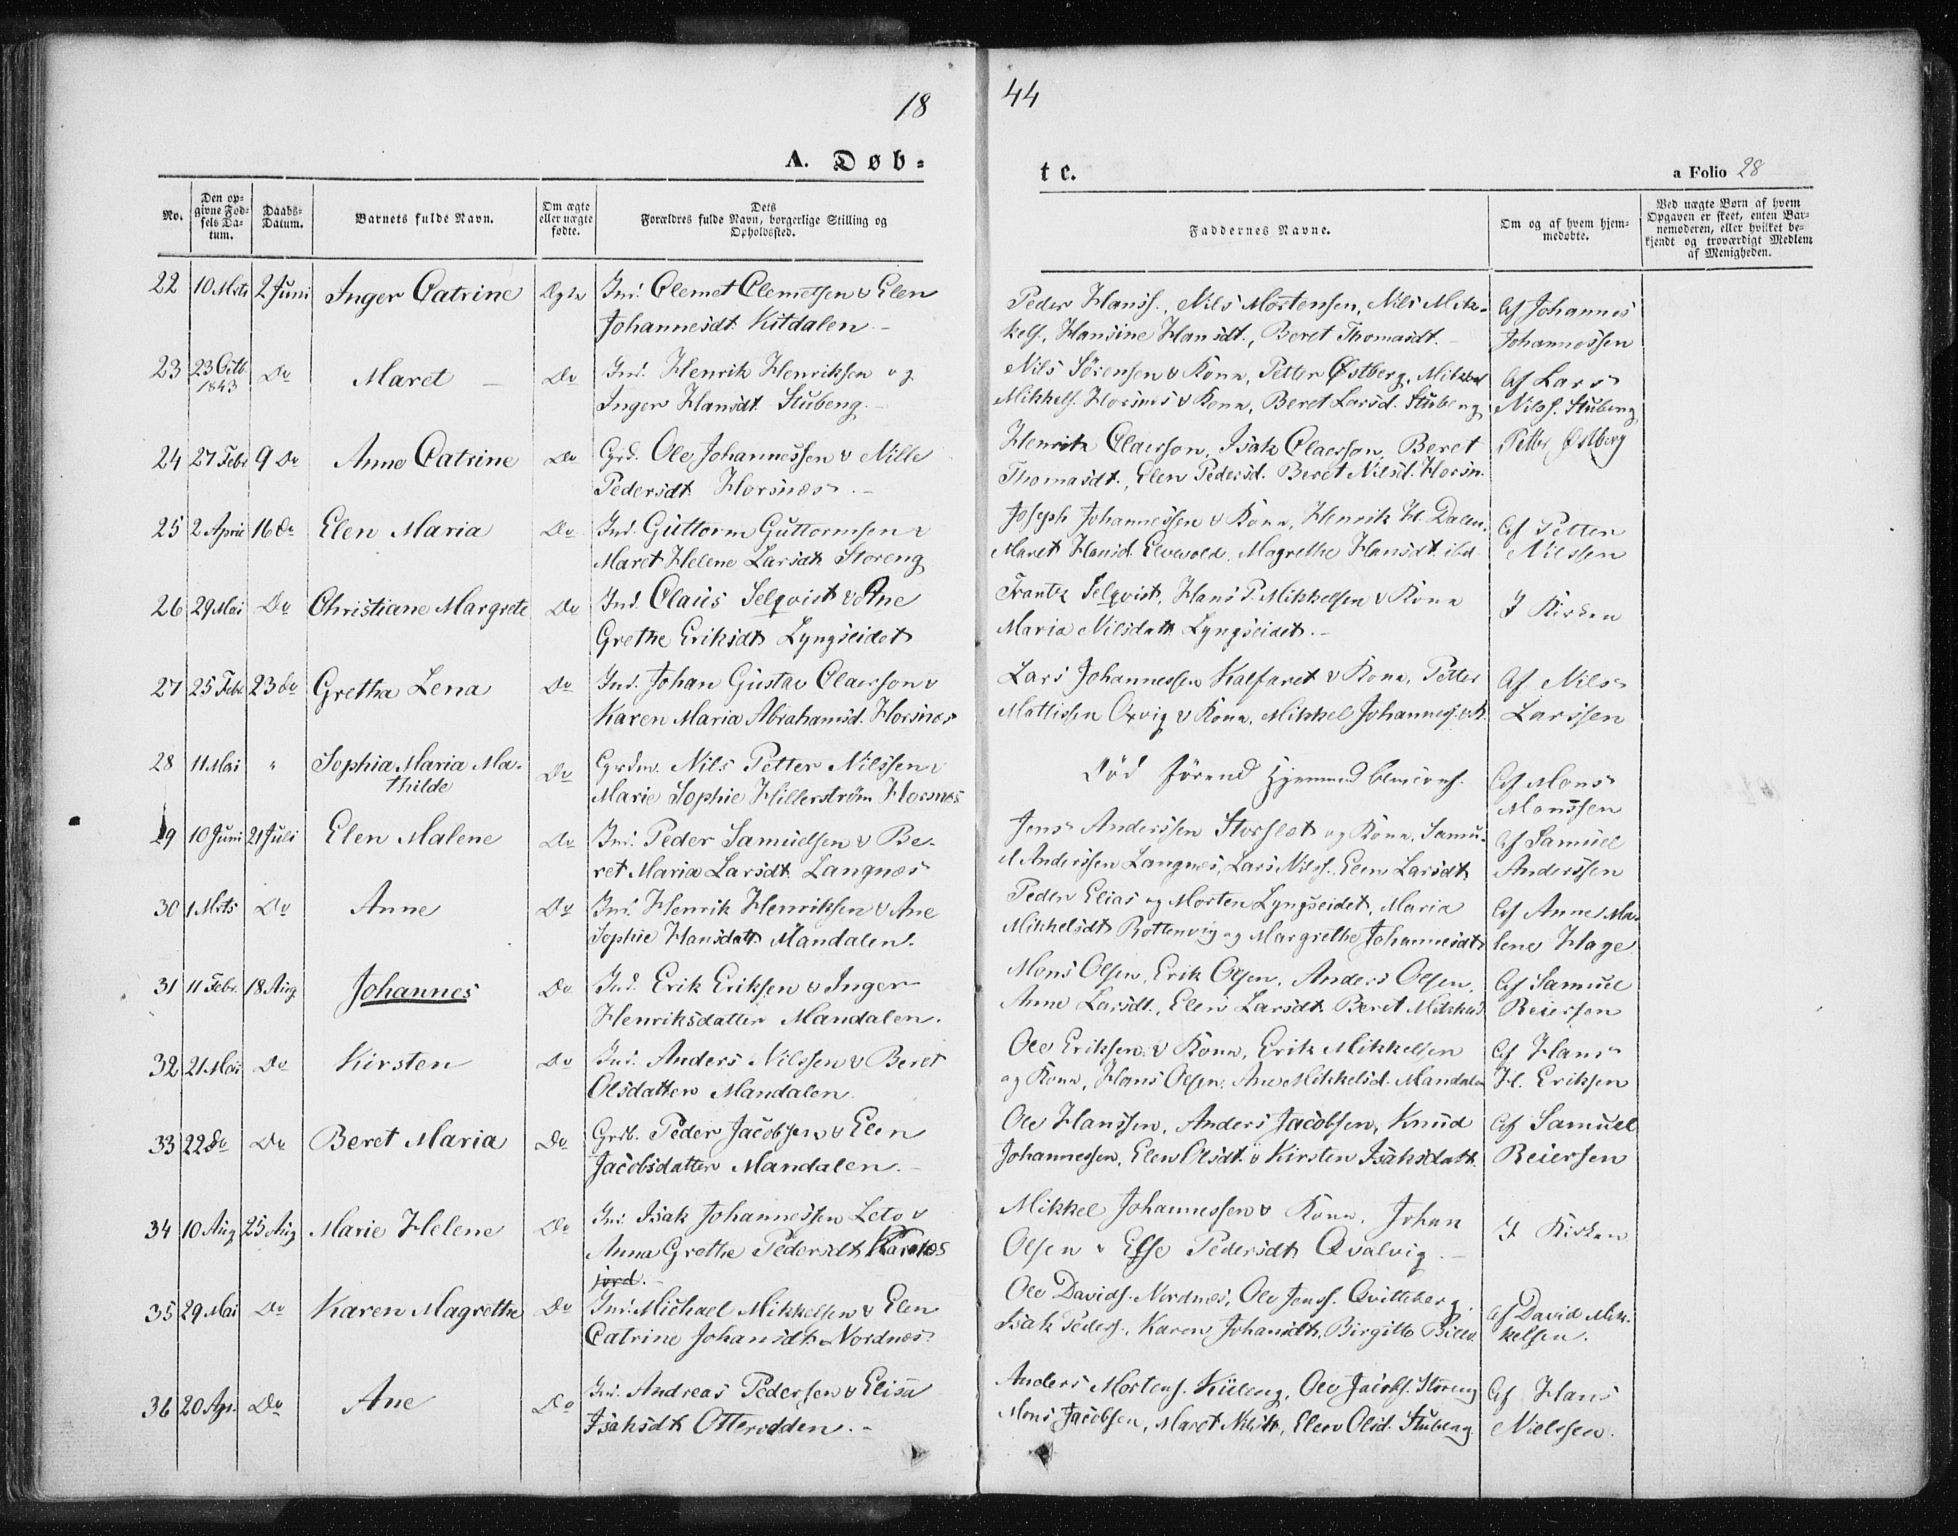 18 44
A. Døb-
te.
a Folio 28
No.
Den op-
givne Fød-
sels Da-
tum.
Daabs-
Datum.
Barnets fulde Navn.
Om ægte
eller uægte
fødte.
Dets
Forældres fulde Navn, borgerlige Stilling og
Opholdssted.
Faddernes Navne.
Om og af hvem hjem-
medøbte.
Ved uægte Børn af hvem
Opgaven er skeet, enten Bar-
nemoderen, eller hvilket be-
kjendt og troværdigt Medlem
af Menigheden.
22 10 Mrts 2 Juni Inger Catrine Ægte Ind. Clemet Clemetsen & Elen
Johannesdt. Kitdalen.
Peder Hanss., Nils Mortensen, Nils Mik-
kels., Hansine Hansdt., Beret Thomasdt.
Af Johannes
Johannessen
23 23 Octb 1843 Do Maret Do Ind. Henrik Henriksen og
Inger Hansdt. Stubeng.
Nils Sörensen & Kone, Petter Østberg, Mikkel
Mikkels. Horsnes & Kone, Beret Larsd. Stubeng
Af Lars
Nilss. Stubeng
24 27 Febr 9 Do Anne Catrine Do Grd. Ole Johannessen & Nille
Pedersdt. Horsnæs.
Henrik Claesson, Isak Claesson, Beret
Thomasdt., Elen Pedersd. Beret Nilsd. Horsn.
Petter Østberg
25 2 April 16 Do Elen Maria Do Ind. Guttorm Guttormsen &
Maret Helene Larsdt. Storeng
Joseph Johannessen & Kone, Henrik H. Dalen,
Maret Hansd. Elvevold, Magrethe Hansdt. ibd
Af Petter
Nilssen
26 29 Mai Do Christiane Margrete Do Ind. Claus Selqvist & Ane
Grethe Eriksdt. Lyngseidet
Frantz Selqvist, Hans P. Mikkelsen & Kone
Maria Nilsdatt. Lyngseidet.
I Kirken
27 25 Febr 23 do Gretha Lena Do Ind. Johan Gustav Claesson &
Karen Maria Abrahamsd. Horsnæs
Lars Johannessen Kalfaret & Kone, Petter
Mattissen Oxvig & Kone, Mikkel Johanness. & K.
Af Nils
Larssen
28 11 Mai " Sophia Maria Ma-
thilde Do Grdm. Nils Petter Nilssen &
Marie Sophie Hillerström Horsnæs
Död förend Hjemmed
Af Mons
Monssen
29 10 Juni 21 Juli Elen Malene Do Ind. Peder Samuelsen & Be-
ret Maria Larsdt. Langnæs
Jens Anderssen Storslet og Kone, Samu-
el Anderssen Langnes, Lars Nilss. Elen Larsdt.
Af Samuel
Anderssen
30 1 Mrts Do Anne Do Ind. Henrik Henriksen & Ane
Sophie Hansdatt. Mandalen.
Peder Elias og Morten Lyngseidet, Maria
Mikkelsdt. Rottenvig og Margrethe Johannesdt.
Af Anne Ma-
lene Hage
31 11 Febr. 18 Aug Johannes Do Ind. Erik Eriksen & Inger
Henriksdatter Mandalen.
Mons Olsen, Erik Olsen, Anders Olsen,
Anne Larsdt., Elen Larsdt. Beret Mikkelsd
Af Samuel
Reiersen
32 21 Mai Do Kirsten Do Ind. Anders Nilssen & Beret
Olsdatter Mandalen.
Ole Eriksen & Kone, Erik Mikkelsen
og Kone, Hans Olsen. Ane Mikkelsd. Mandalen
Af Hans
H. Eriksen
33 22 Do Do Beret Maria Do Grdb. Peder Jacobsen & Elen
Jacobsdatter Mandalen.
Ole Hanssen, Anders Jacobsen, Knud
Johannessen, Elen Olsdt. & Kirsten Isaksdatt.
Af Samuel
Reiersen
34 10 Aug 25 Aug Marie Helene Do Ind. Isak Johannessen Leto &
Anna Grethe Pedersdt.
jord.
Mikkel Johannessen & Kone, Johan
Olsen & Else Pedersdt. Qvalvig.
I Kirken
35 29 Mai Do Karen Magrethe Do Ind. Michael Mikkelsen & Elen
Catrine Johansdt. Nordnæs
Ole Davids. Nordnæs, Ole Jens. Qvitteberg,
Isak Peders., Karen Johansdt., Birgitte
Af David Mik-
kelsen.
36 20 Apr. Do Ane Do Ind. Andreas Pedersen & Elise
Isaksdt. Otterodden.
Anders Mortens. Kileng, Ole Jacobs. Storeng
Mons Jacobsen, Maret Nilsdt., Elen Olsd. Stubeng
Af Hans
Nielssen.